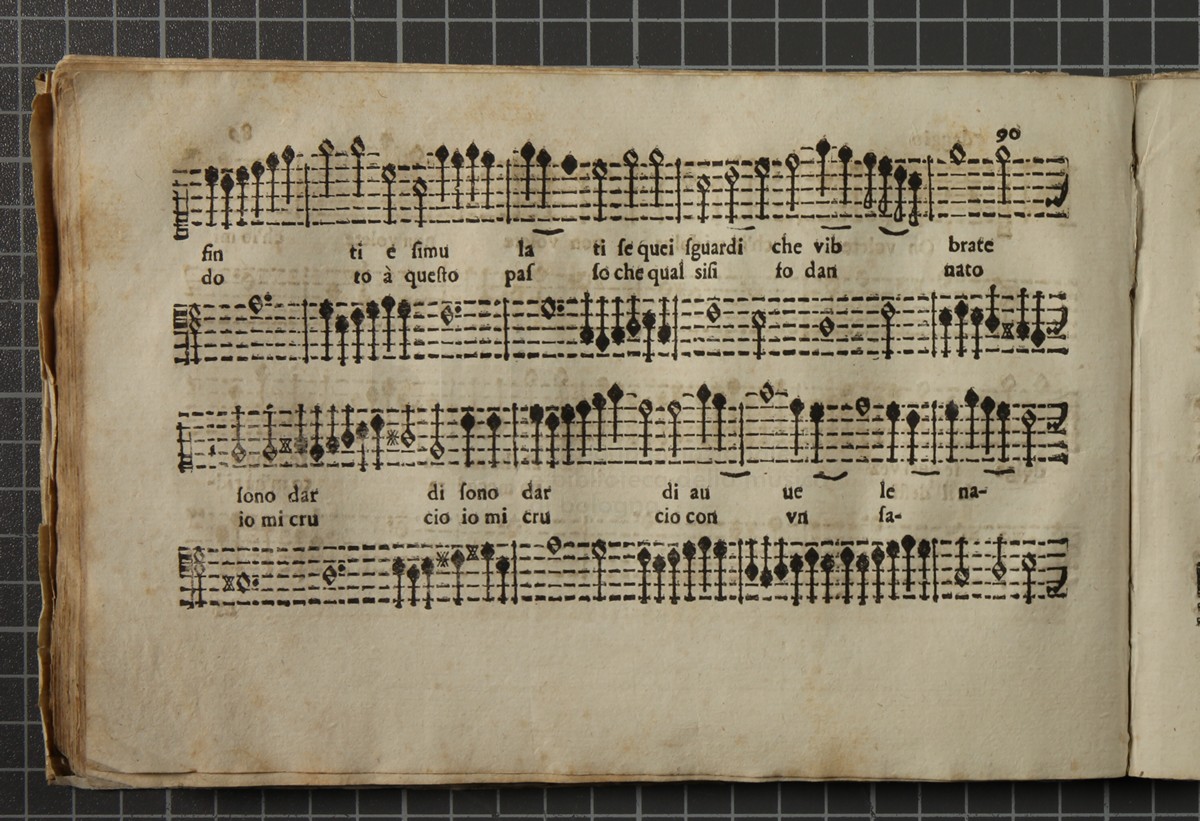 90
fin ti e simu la ti ſe quei ſguardi che vib brate
do to à queſto paſ ſo che qual siſi fo dan nato
ſono dar di ſono dar di au ue le na-
io mi cru cio io mi cru cio con vn ſa-